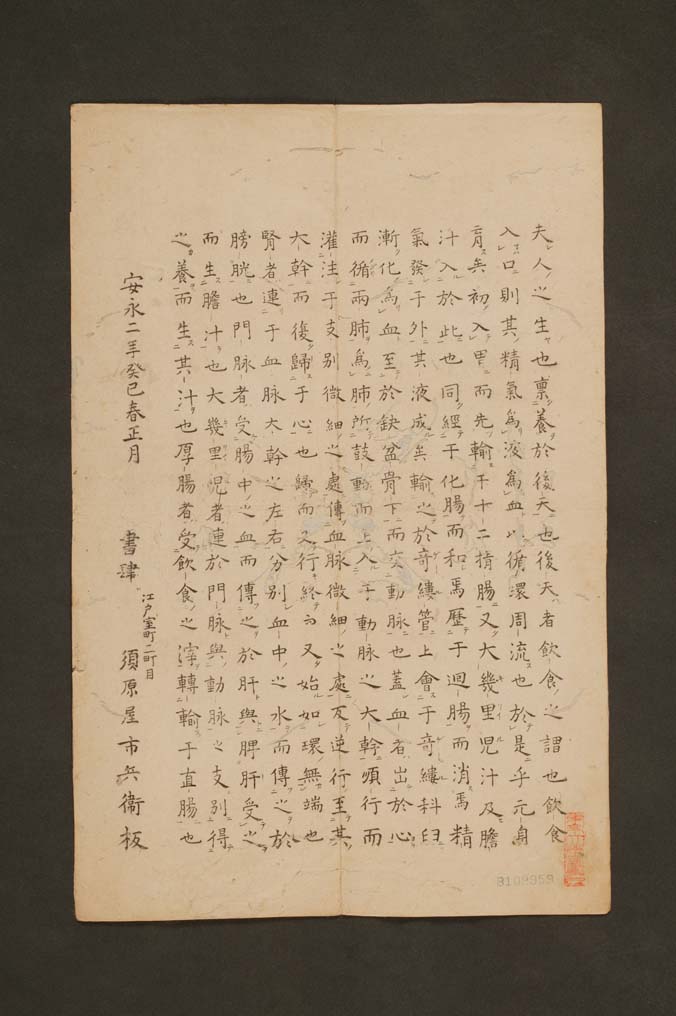 夫人之生也稟養於後天也後天者飲食之謂也飲食
入口則其精氣為液為血以循環周流也於是乎元身
育矣初入胃而先輸于十二指腸又大幾里児汁及膽
汁入於此也同經于化腸而和焉歷于迴腸而消焉精
氣發于外其液成矣輸之於奇縷管上會于奇縷科臼
漸化為血至於缺盆骨下而交動脉也蓋血者出於心
而循兩肺為肺所鼓動而上入于動脉之大幹順行而
灌注于支別微細之處傳血脉微細之處反逆行至其
大幹而復歸于心也歸而又行終而又始如環無端也
腎者連于血脉大幹之左右分別血中之水而傳之於
膀胱也門脉者受腸中之血而傳之於肝與脾肝受之
而生膽汁也大幾里児者連於門脉與動脉之支別得
之養而生其汁也厚腸者受飲食之滓轉輸于直腸也
安永二年癸巳春正月
書肆 江戸室町二町目 須原屋市兵衛板
8109959